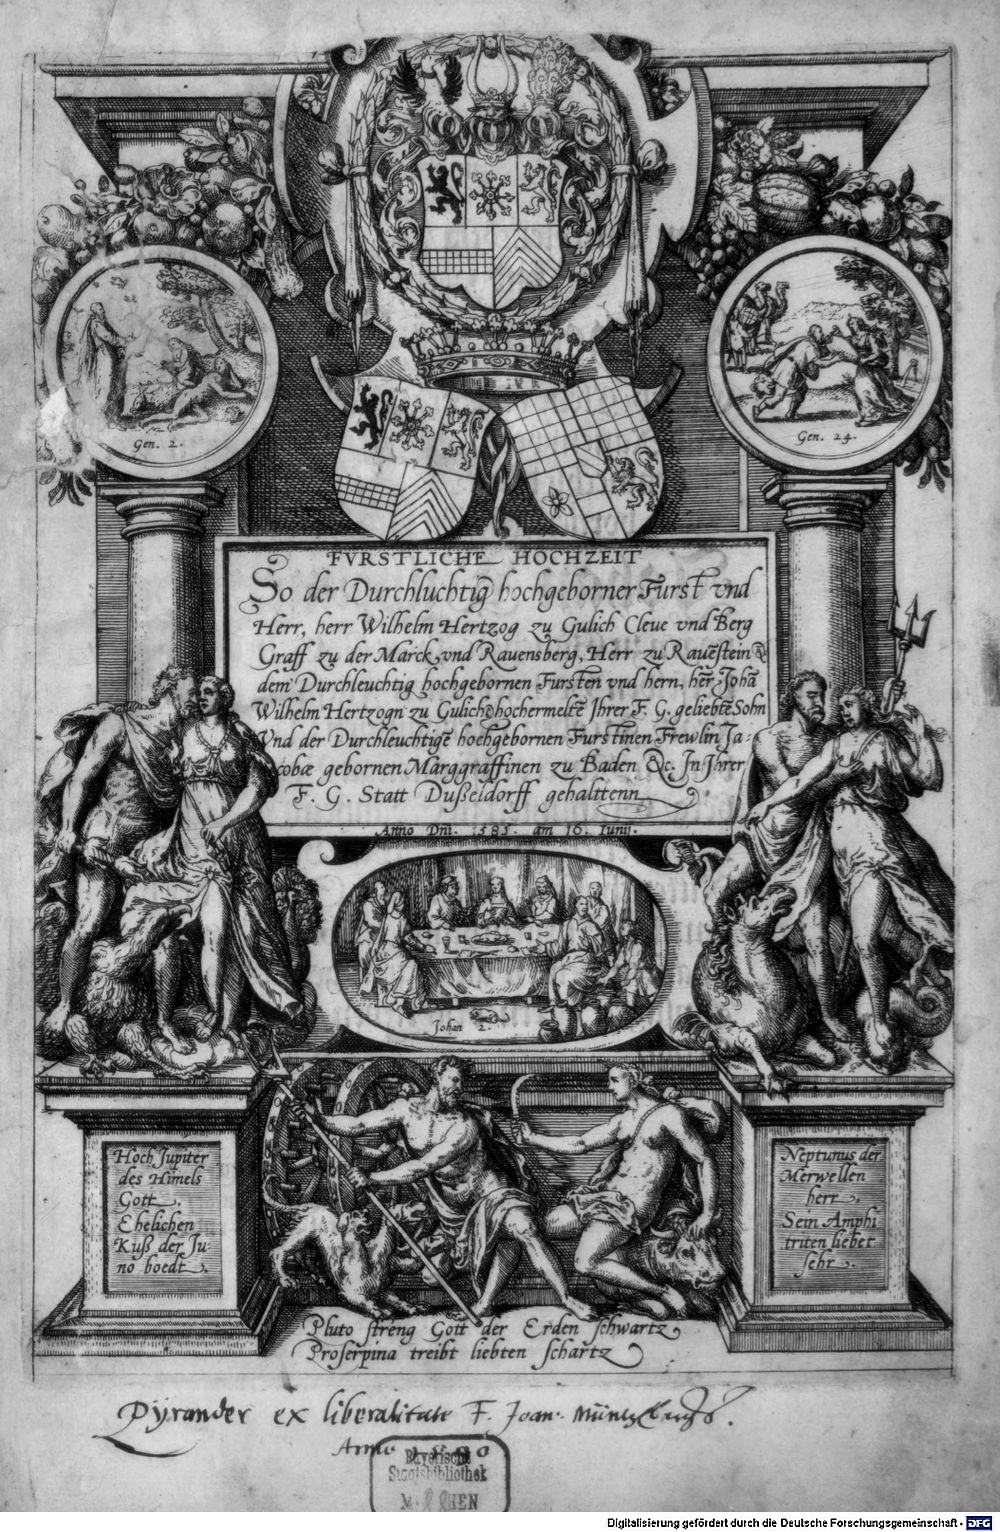 Gen. 2.
Gen. 24.
FVRSTLICHE HOCHZEIT
So der Durchluchtig hochgeborner Furst vnd
Herr, herr Wilhelm Hertzog zu Gulich Cleue vnd Berg
Graff zu der Marck, vnd Rauensberg, Herr zu Raue͂stein &
dem Durchleuchtig hochgebornen Fursten vnd hern, he͂r Joha͂
Wilhelm Hertzogn zu Gulich & hochermelte͂ Jhrer F. G. geliebte͂ Sohn
Vnd der Durchleuchtige͂ hochgebornen Furstinen Frewlin Ja:
cobæ gebornen Marggraffinen zu Baden &c. Jn Jhrer
F. G. Statt Dußeldorff gehalttenn
Anno Dni. 1585. am 16. Iunij.
Johan 2.
Hoch Jupiter
des Himels
Gott.
Ehelichen
Kuß der Ju:
no boedt.
Neptunus der
Merwellen
herr.
Sein Amphi
triten liebet
sehr.
Pluto streng Gott der Erden schwartz,
Proserpina treibt liebten schartz
Pyrander ex liberalitate F. Joan.
Anno
Bayerische
Staatsbibliothek
Digitalisierung gefördert durch die Deutsche Forschungsgemeinschaft - DFG